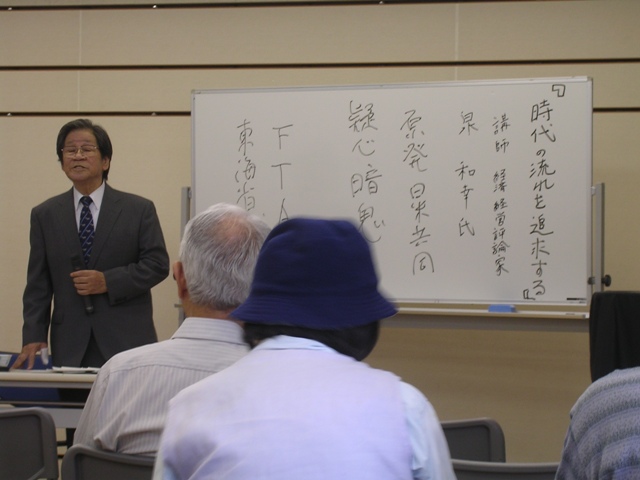 『時代の流れを追求する』
講師 経済経営評論家
泉 和幸氏
原発 日米共同
疑心暗鬼
FTA
東海省